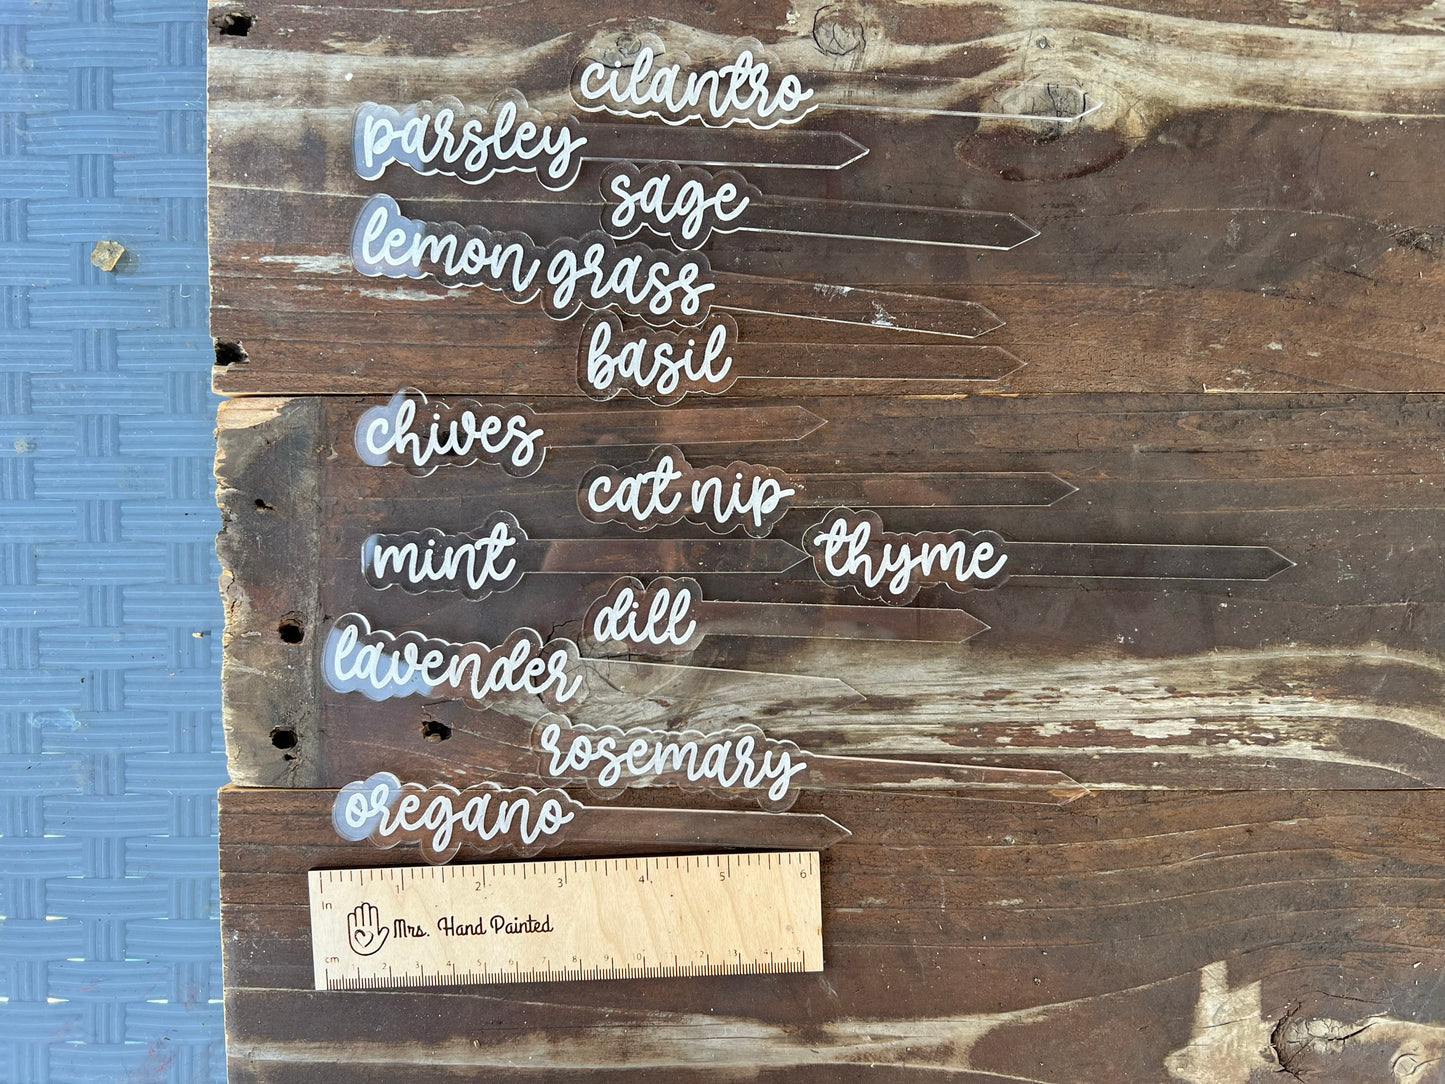 cilantro
parsley
sage
lemon grass
basil
chives
cat nip
mint
thyme
dill
lavender
rosemary
oregano
In 1 2 3 4 5 6
Mrs. Hand Painted
cm 1 2 3 4 5 6 7 8 9 10 11 12 13 14 15